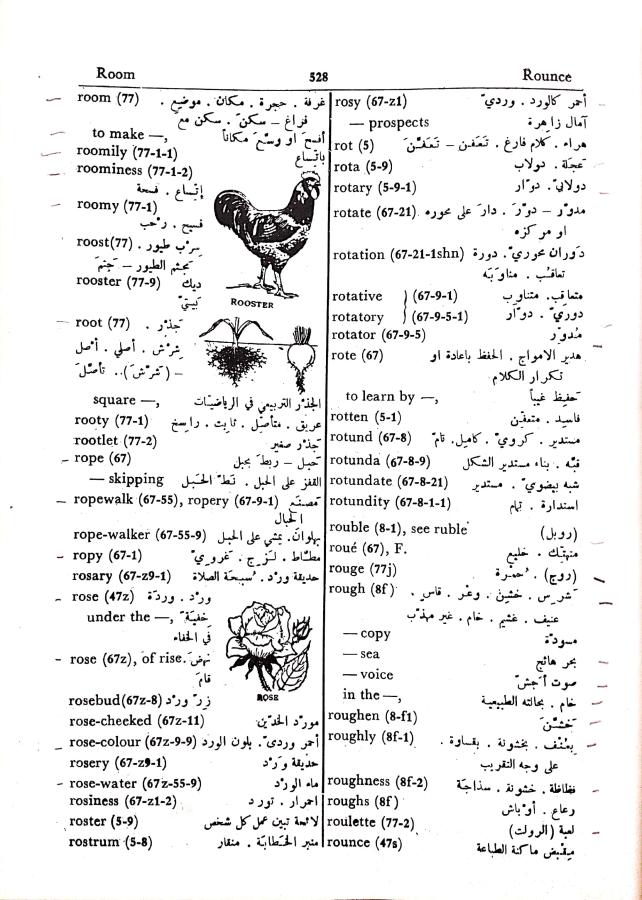 Room 528 Rounce
room (77) غرفة . حجرة . مكان . موضع .
فراغ – سكن . سكن مع
to make —, أفسح او وسّع مكاناً
roomily (77-1-1) باتساع
roominess (77-1-2)
إتساع . فسحة
roomy (77-1)
فسيح . رحب
roost(77) سرب طيور .
تجثم الطيور – جثم
rooster (77-9) ديك
بيتيّ
ROOSTER
root (77) جذر .
شرش . أصلي . أصل
– (شرّش) .. تأصّل
square —, الجذر التربيعي في الرياضيات
rooty (77-1) عريق . متأصّل . ثابت . راسخ
rootlet (77-2) جذر صغير
rope (67) حبل – ربط بحبل
— skipping القفز على الحبل . نطّ الحبل
ropewalk (67-55), ropery (67-9-1) مصنع
الحبال
rope-walker (67-55-9) بهلوان . يمشي على الحبل
ropy (67-1) مطّاط . لزج . غرويّ
rosary (67-z9-1) حديقة ورد . سبحة الصلاة
rose (47z) ورد . وردة
under the —, خفية
في الخفاء
rose (67z), of rise. نهض .
قام
ROSE
rosebud(67z-8) زرّ ورد
rose-cheeked (67z-11) مورّد الخدّين
rose-colour (67z-9-9) أحمر وردي . بلون الورد
rosery (67-z9-1) حديقة ورد
rose-water (67z-55-9) ماء الورد
rosiness (67-z1-2) احمرار . تورد
roster (5-9) لائحة تبين عمل كل شخص
rostrum (5-8) منبر الخطابة . منقار
rosy (67-z1) أحمر كالورد . ورديّ
— prospects آمال زاهرة
rot (5) هراء . كلام فارغ . تعفن – تعفّن
rota (5-9) عجلة . دولاب
rotary (5-9-1) دولابيّ . دوّار
rotate (67-21) مدوّر – دوّر . دار على محوره
او مركزه
rotation (67-21-1shn) دوران محوريّ . دورة
تعاقب . مناوبة
rotative } (67-9-1) متعاقب . متناوب
rotatory } (67-9-5-1) دوريّ . دوّار
rotator (67-9-5) مُدوّر
rote (67) هدير الامواج . الحفظ باعادة او
تكرار الكلام
to learn by —, حفيظ غيباً
rotten (5-1) فاسد . متعفّن
rotund (67-8) مستدير . كرويّ . كامل . تامّ
rotunda (67-8-9) قبّة . بناء مستدير الشكل
rotundate (67-8-21) شبه بيضويّ . مستدير
rotundity (67-8-1-1) استدارة . تمام
rouble (8-1), see ruble (روبل)
roué (67), F. منهتك . خليع
rouge (77j) (روج) . حمرة
rough (8f) شرس . خشن . وعر . قاس .
عنيف . غشيم . خام . غير مهذّب
— copy مسودّة
— sea بحر هائج
— voice صوت أجشّ
in the —, خام . بحالته الطبيعية
roughen (8-f1) خشّن
roughly (8f-1) بعنف . بخشونة . بقساوة .
على وجه التقريب
roughness (8f-2) فظاظة . خشونة . سذاجة
roughs (8f) رعاع . أوباش
roulette (77-2) لعبة (الرولت)
rounce (47s) مقبض ماكنة الطباعة